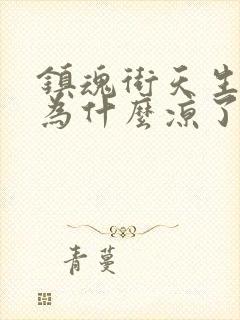 鎮魂街天生
為什麼涼了
青蔓